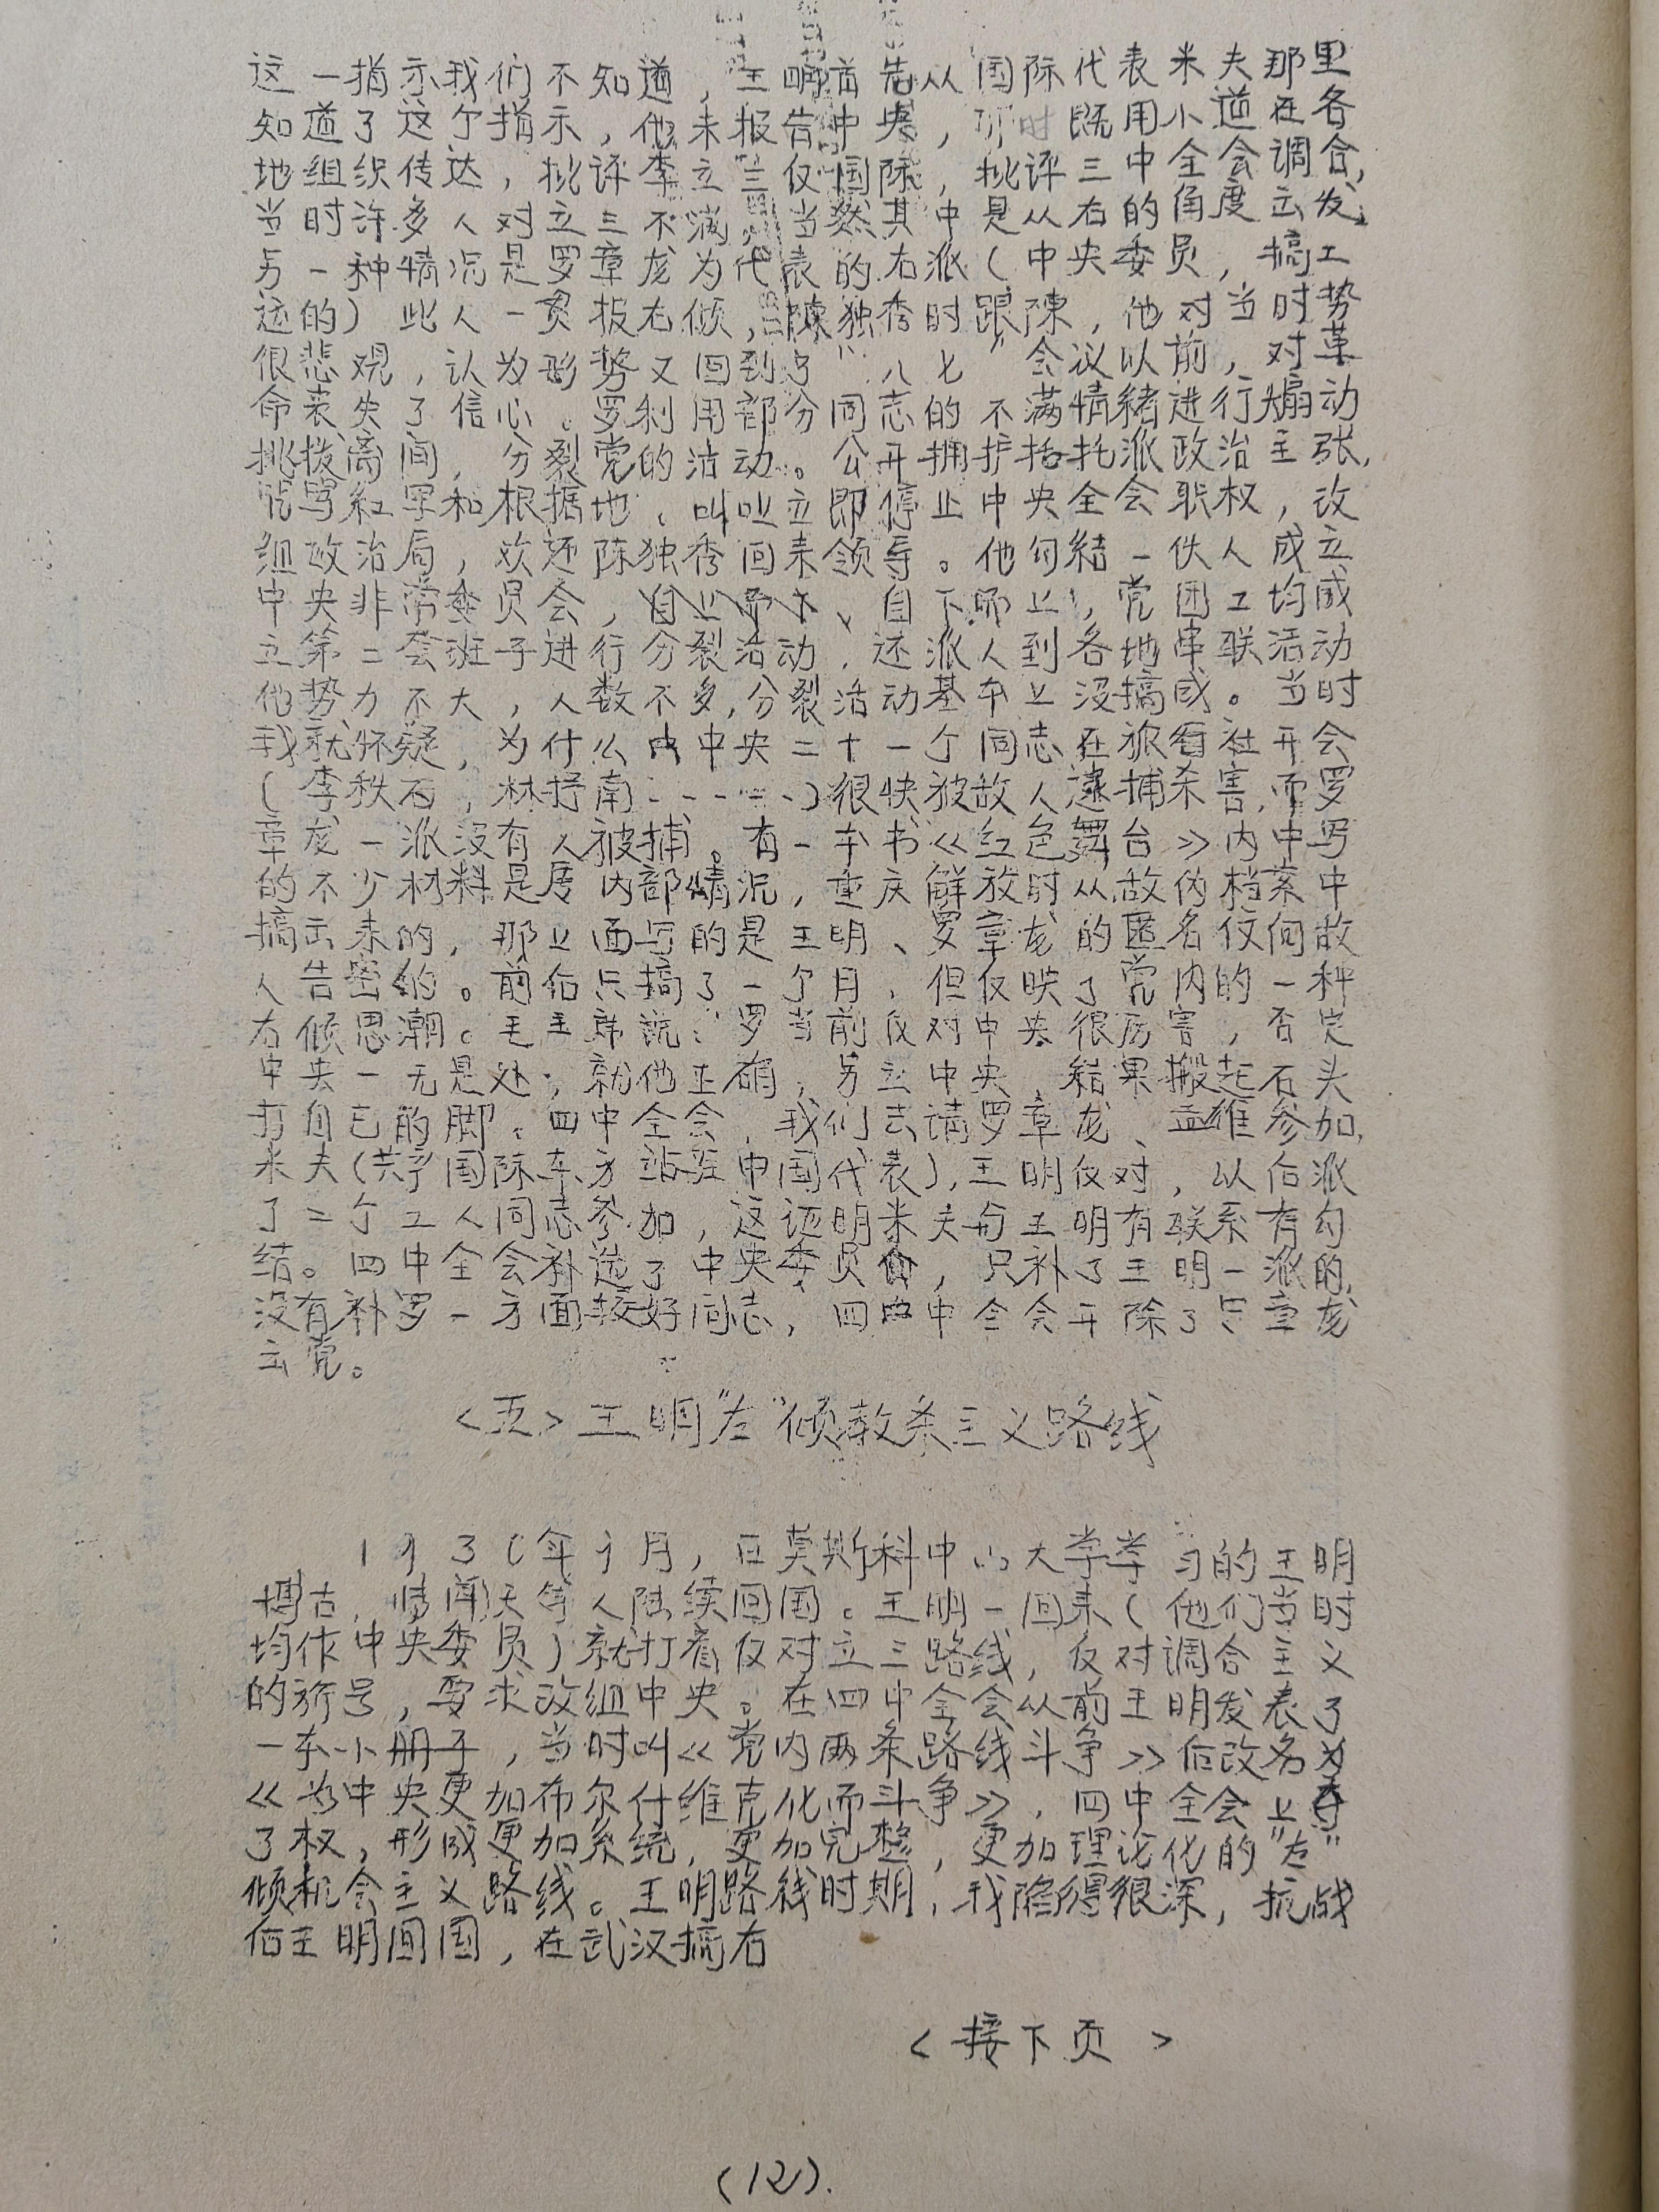 这一指示我们不知道，王明首先从国际代表米夫那里
知道了这个指示，他未报告中央，同时既用小道在各
地组织传达，批评李立三仅国际，批评三中全会调合，
当时许多人对立三不满，当然其中是从右的角度去发，
另一种情况是罗章龙为代表的右派（中央委员，搞工
运的）此人一贯报右倾，陳独秀时跟陳，他对当时势
很悲观，认为形势又回到了“八七”会议以前，对革
命丧失了信心。罗利用部分同志的不满情緒进行煽动
挑拨离间，分裂党的活动。公开拥护括托派政治主张，
咒骂紅軍和根据地，叫吐立即停止中央全会职权，改
组政治局，欢还陈独秀回来领导。他勾結一伙人成立
中央非常委员会，自上而下、自下而上，党团工均成
立第二套班子进行分裂活动，还派人到各地串联活动
他势力不大，人数不多，分裂活动基本上没搞成。当时
我就怀疑，为什么中央二十一个同志在旅看社开会
（李秩石，林抒南-----）很快被敌人逮捕杀害，而罗
章龙一派没有人被捕。有一本书《红色舞台》内中写
的不少材料是属内部情况，重庆解放时从敌伪档案中
搞去来的，那上面写的是王明、罗章龙的匿名仅向敌
人告密的。前后只搞了一个月，但仅映了党内的一种
右倾思潮。毛主席说：罗当前仅对中央很厉害，否定
中央一无是处，就他正确，另立中央，結果搬起石头
打自已的脚。四中全会，我们去请罗章龙、孟维参加，
米夫（共予国际东方站驻中国代表），王明仅对，以后派
了二个工人同志参加，这证明米夫与王明有联系有勾
结。四中全会补选了中央委员会，只补了王明一派的，
没有补罗一方面较好同志，四中全会开除了罗章龙
去党。
<五>王明“左”倾教条主义路线
1930年个月，在莫斯科中山大学学习的王明
博古，张闻天等人陆续回国。王明一回来（他们当时
均作中央委员）就打着仅对立三路线，仅对调合主义
的旂号，要求改组中央。在四中全会从前王明发表了
一本小册子，当时叫《党内两条路线斗争》后改名为
《为中央更加布尔什维克化而斗争》，四中全会上夺
了权，形成更加系统，更加完整，更加理论化的“左”
倾机会主义路线。王明路线时期，我陷得很深，抗战
后王明回国，在武汉搞右
<接下页>
(12).